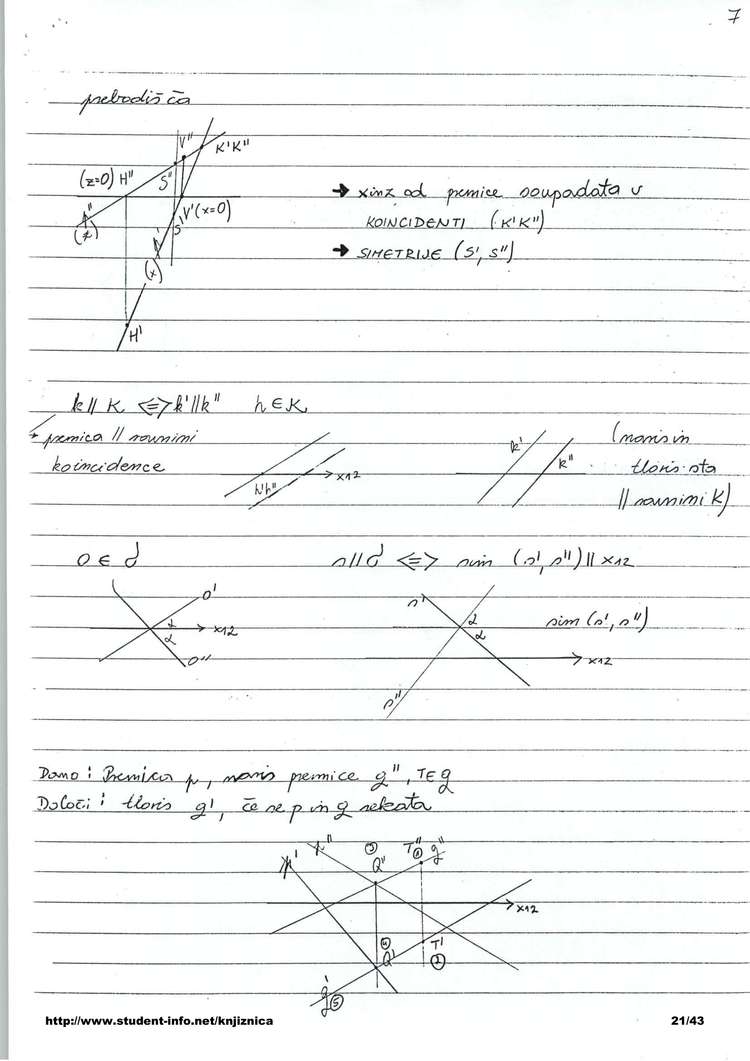 7
prebodišča
V"
K'K"
(z=0) H"
S"
p"
(z)
V'(x=0)
S'
p'
(x)
H'
→ x in z od premice soupadata v
KOINCIDENTI (K'K")
→ SIMETRIJE (S', S")
k // K <=> k' // k" h ∈ K
→ premica // ravnini
koincidence
h'h"
x12
k'
k"
(naris in
tloris sta
// ravnini K)
o ∈ δ
o'
α
α
x12
o"
s // δ <=> sim (s', s") // x12
s'
α
α
sim (s', s")
x12
s"
Dano: Premica p, naris premice g", T∈g
Določi: tloris g', če se p in g sekata
p'
p"
③
Q"
T"
①
g"
x12
④
Q'
T'
②
g'
⑤
http://www.student-info.net/knjiznica
21/43